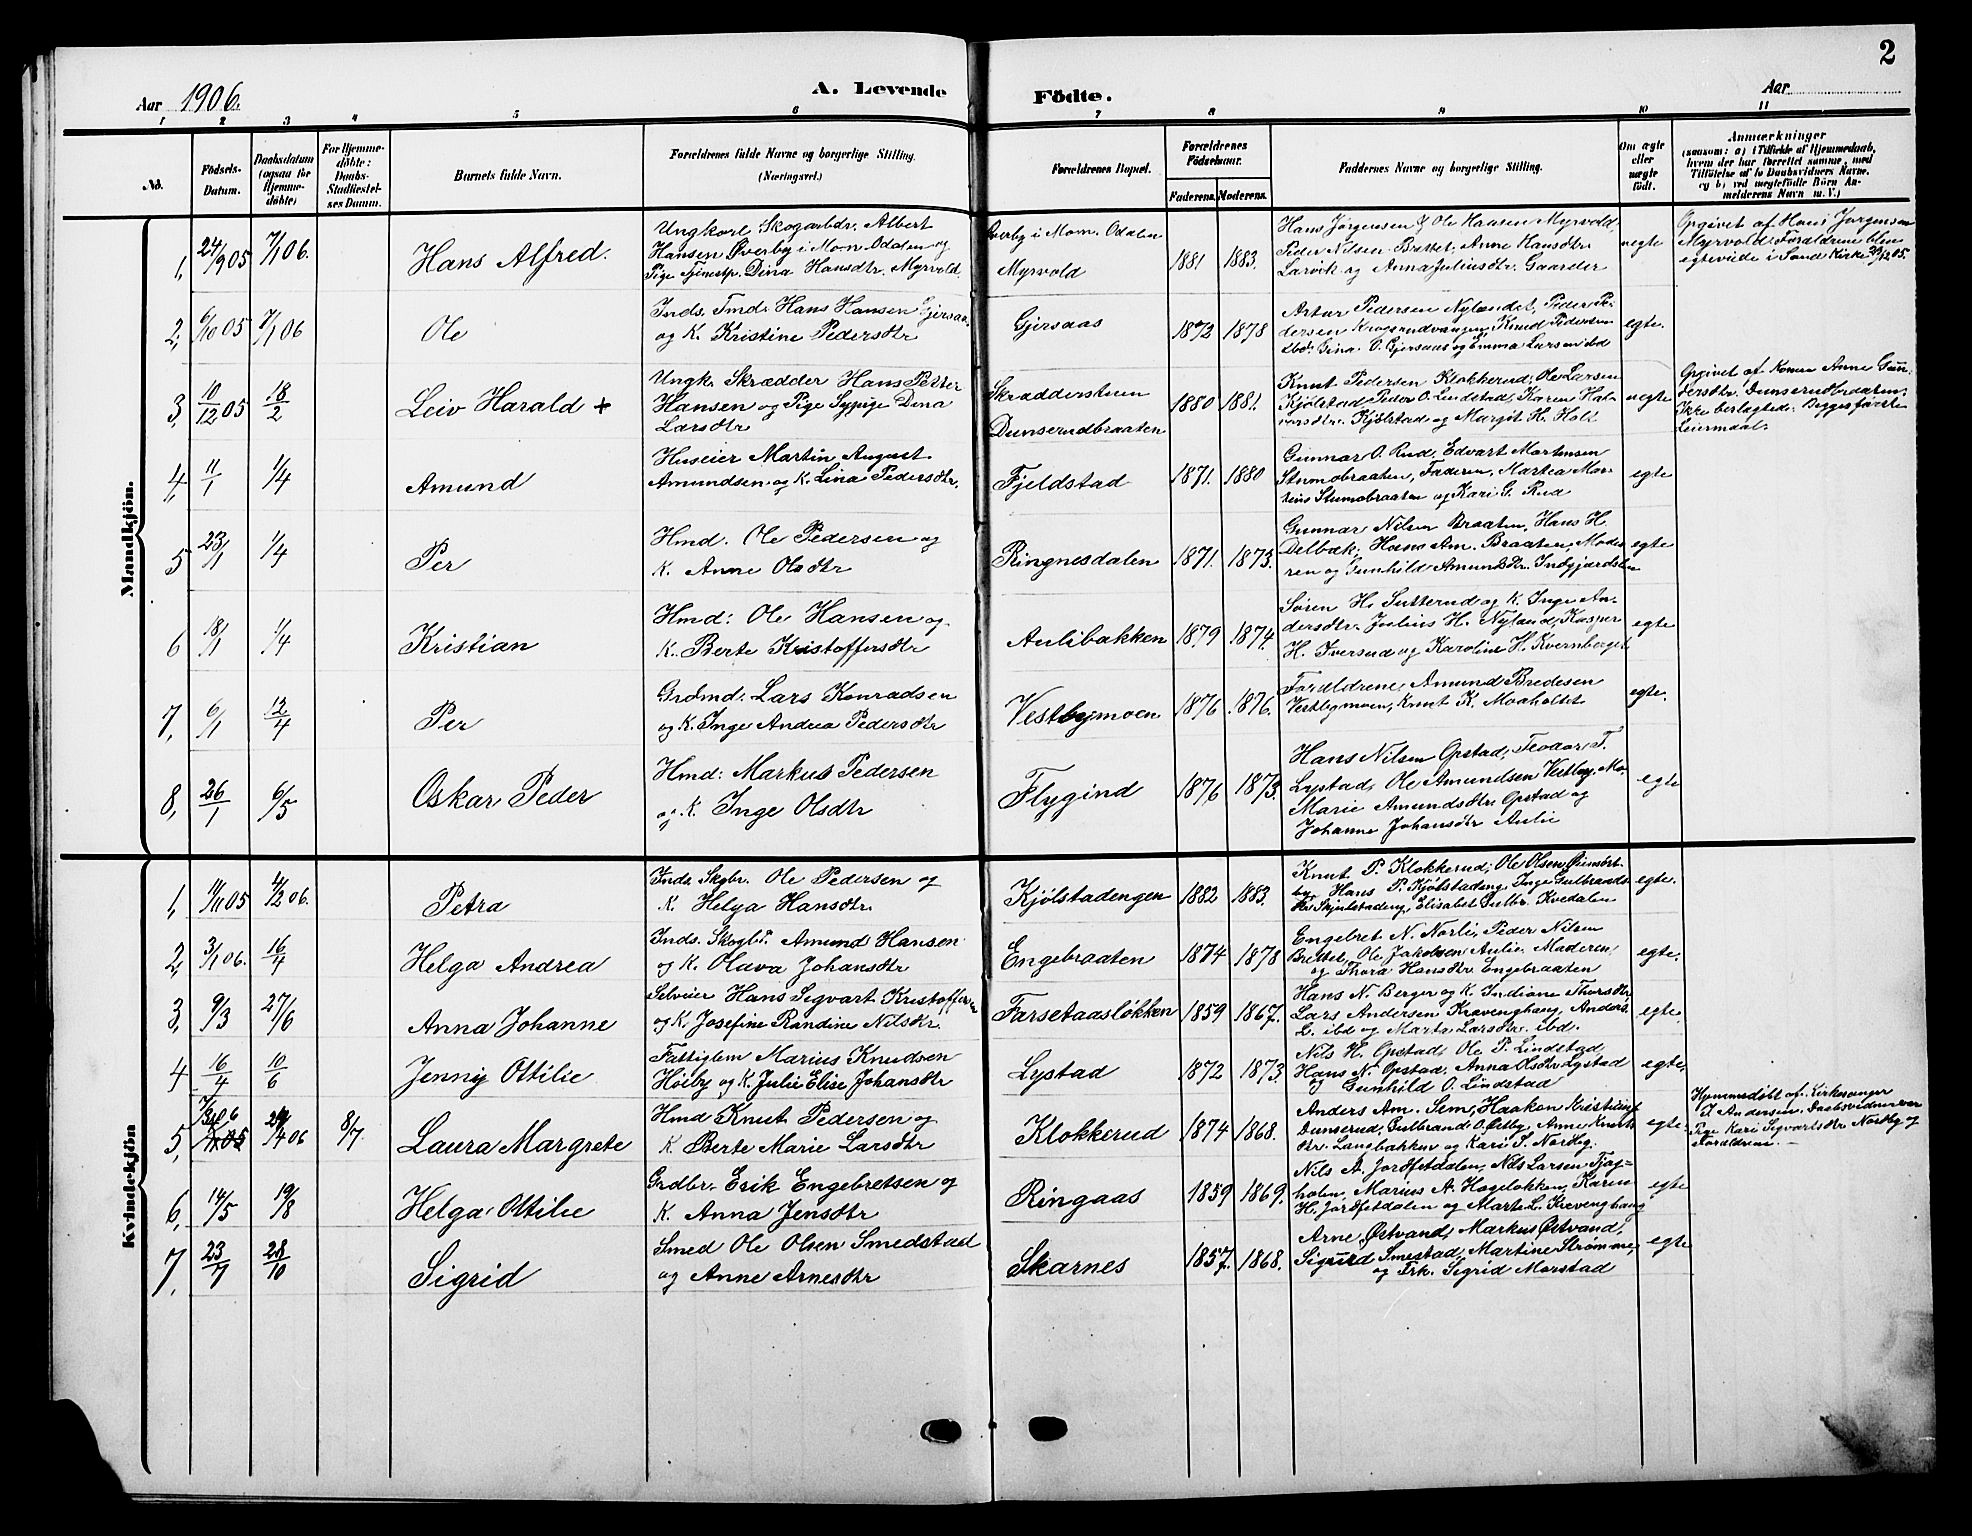 2
Aar 1906.
A. Levende Födte.
Aar
1 2 3 4 5 6 7 8 9 10 11
No.
Födsels-Datum.
Daabsdatum (ogsaa for Hjemme-döbte)
For Hjemme-döbte: Daabs-Stadfæstel-ses Datum.
Barnets fulde Navn.
Forældrenes fulde Navne og borgerlige Stilling. (Næringsvei.)
Forældrenes Bopæl.
Forældrenes Födselsaar.
Faderens. Moderens.
Faddernes Navne og borgerlige Stilling.
Om ægte eller uægte født.
Anmærkninger
(saasom: a) i Tilfælde af Hjemmedaab,
hvem der har forrettet samme, med
Tilföielse af to Daabsvidners Navne.
og b) ved uægtefödte Börn An-
melderens Navn m. V.)
Mandkjön.
1, 24/9 05 7/1 06. Hans Alfred.
Ungkarl Skogarbdr. Albert
Hansen Øverby i Mom. Odalen og
Pige Tjenestp. Dina Hansdtr. Myrvold.
Øverby i Mom. Odalen
Myrvold
1881 1883.
Hans Jørgensen & Ole Hansen Myrvold,
Peder Nilsen Brattet. Anne Hansdtr
Larvik og Anna Juliusdtr. Gaarder
uegte
Opgivet af Hans Jørgensen
Myrvold. Forældrene blev
egteviede i Sand Kirke 26/12 05.
2, 6/10 05 7/1 06 Ole
Inds. Tmd. Hans Hansen Gjersaas
og K. Kristine Pedersdtr
Gjersaas
1872 1878
Artur Pedersen Nylændet, Peder Pe-
dersen Krogsrudvangen, Knud Pedersen
ibd. Grina O. Gjersaas og Emma Larsen ibd
egte.
3, 10/12 05 18/2 Leiv Harald +
Ungk. Skrædder Hans Petter
Hansen og Pige Sypige Dina
Larsdtr
Skrædderstuen
Dunserudbraaten
1880 1881.
Knut Pedersen Klokkerud, Ole Larsen
Kjölstad, Peder O. Lindstad, Karen Hal-
vorsdtr. Kjölstad og Margit H. Holt
uegte
Opgivet af Konen Anne Gun-
dersdtr. Dunserud
Ikke beslægtede. Begges første
Leiermaal.
4, 11/1 1/4 Amund
Huseier Martin August
Amundsen og K. Lina Pedersdtr.
Fjeldstad
1871. 1880
Gunnar O. Rud, Edvart Mortensen
Stumobraaten, Faderen, Martea Mor-
tens Stumobraaten og Kari G. Rud
egte
5 23/1 1/4 Per
Hmd. Ole Pedersen og
K. Anne Olsdtr
Ringnesdalen
1871. 1873.
Gunnar Nilsen Braaten, Hans H.
Delbæk, Hans Am. Braaten, Mode-
ren og Gunhild Amundsdtr.
egte
6 18/1 1/4 Kristian
Hmd: Ole Hansen og
K. Berte Kristoffersdtr
Aulibakken
1879 1874.
Søren H. Sutterud og K. Inge An-
dersdtr. Julius H. Nyland, Kasper
H. Iversrud og Karoline H. Kvernberget
egte
7, 6/1 12/4 Per
Grdmd. Lars Konradsen
og K. Inge Andrea Pedersdtr
Vestbymoen
1876 1876.
Forældrene, Amund Bredesen
Vestbymoen, Knut K. Moaholtet
egte.
8, 26/1 6/5 Oskar Peder
Hmd: Markus Pedersen
og K. Inge Olsdtr
Flygind
1876 1873.
Hans Nilsen Opstad, Teodor T.
Lystad, Ole Amundsen Vestby,
Marie Amundsdtr. Opstad og
Johanne Johansdtr Aulie
egte
Kvindekjön
1, 1/11 05 4/2 06. Petra
Inds. Skgbr. Ole Pedersen og
K. Helga Hansdtr.
Kjølstadengen
1882 1883.
Knut P. Klokkerud, Ole Olsen
by Hans P. Kjølstadeng, Inge Gulbrands-
dtr. Skjølstadeng, Elisabet Gulbr. Kvedalen
egte.
2, 3/1 06. 16/4 Helga Andrea
Inds. Skogbr. Amund Hansen
og K. Olava Johansdtr
Engebraaten
1874 1878
Engebret N. Norli, Peder Nilsen
Brettet, Ole Jakobsen Aulie, Moderen,
og Thora Hansdtr. Engebraaten
egte.
3, 9/3 27/6 Anna Johanne
Selveier Hans Segvart Kristoffersen
og K. Josefine Randine Nilsdtr.
Farsetaasløkken
1859 1867.
Hans N. Berger og K. Indiane Thorsdtr.
Lars Andersen Krævenghaug, Anders
L. ibd og Marta Larsdtr. ibd.
egte.
4 16/4 10/6 Jenny Ottilie
Fattiglem Marius Knudsen
Höiby og K. Julie Elise Johansdtr
Lystad
1872 1873.
Nils H. Opstad, Ole P. Lindstad,
Hans N. Opstad, Anna Olsdtr Lystad
og Gunhild O. Lindstad
egte.
5, 06 4/4 06 8/7 Laura Margrete
Hmd Knut Pedersen og
K Berte Marie Larsdtr
Klokkerud
1874 1868.
Anders Am. Sem, Haaken Kristians
Dunserud, Gulbrand O. Østby, Anne Knuts-
dtr. Langbakken og Kari S. Nordby.
egte.
Hjemmedøbt af Kirkesanger
J. Andersen. Daabsvidner var
Pige Kari Segvartsdtr Nordby og
Forældrene. —
6, 14/5 19/8 Helga Ottilie
Grdbr. Erik Engebretsen og
K. Anna Jensdtr
Ringaas
1859 1869.
Nils A. Jordfetdalen, Nils Larsen Fjag-
holen, Marius A. Hageløkken, Karen
H. Jordfetdalen og Marte L. Krevenghaug
egte
7, 23/7 28/10 Sigrid
Smed Ole Olsen Smedstad
og Anne Arnesdtr
Skarnes
1857. 1868.
Arne Østvand, Markus Østvand,
Sigurd Smestad, Martine Strømme,
og Frk. Sigrid Morstad
egte